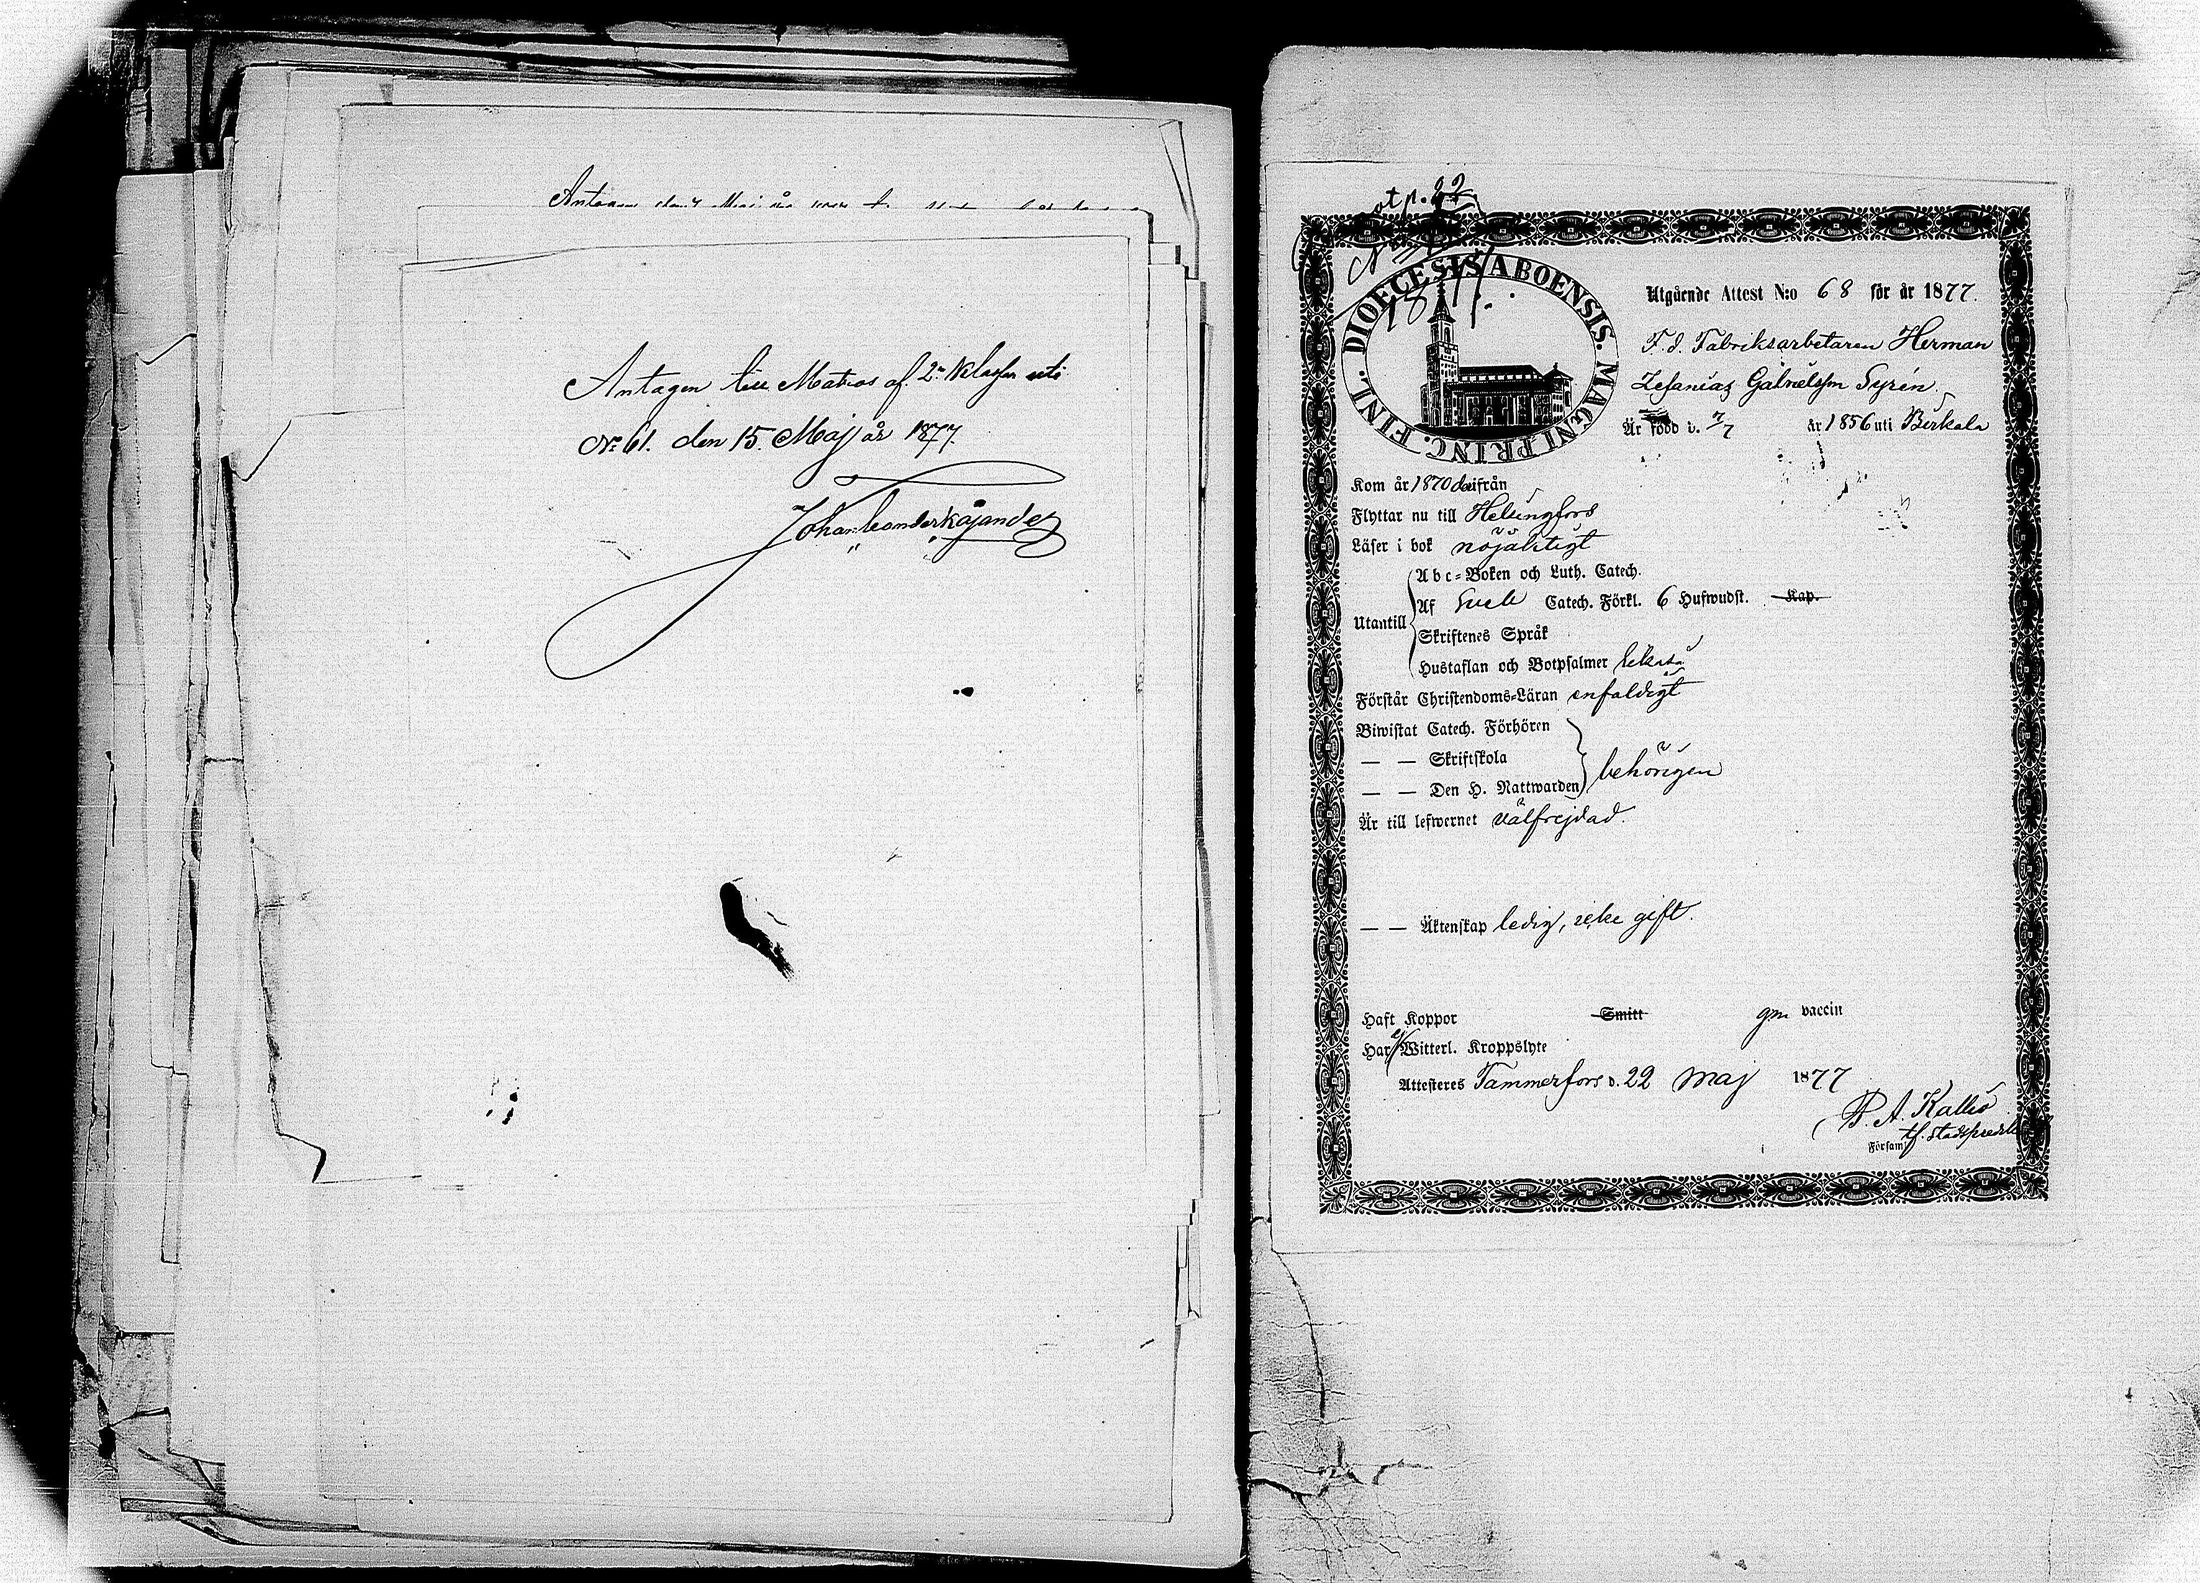 Antagen
Antagen till Matros af 2:a Klassen uti
No 61. den 15. Maj år 1877.
Johan Leander Kajander
Not p. 22
No
1877.
DIOECESIS ABOENSIS. MAGNI PRINC. FINL.
Utgående Attest N:o 68 för år 1877.
F.d. Fabriksarbetaren Herman
Zefanias Gabrielsson Syrén.
Är född d. 7/7 år 1856 uti Birkala
Kom år 1870 derifrån
Flyttar nu till Helsingfors
Läser i bok nöjaktigt
Utantill
Abc-Boken och Luth. Catech.
Af Sveb Catech. Förkl. 6 Hufwudst. Kap.
Skriftenes Språk
Hustaflan och Botpsalmer
Förstår Christendoms-Läran enfaldigt
Biwistat Catech. Förhören
— — Skriftskola
behörigen
— — Den H. Nattwarden
Är till lefwernet välfrejdad.
— — Äktenskap ledig, icke gift.
Haft Koppor Smitt gm vaccin
Har ej Witterl. Kroppslyte
Attesteres Tammerfors d. 22 maj 1877
B. A. Kallio
tf. Stadspredik
Församl